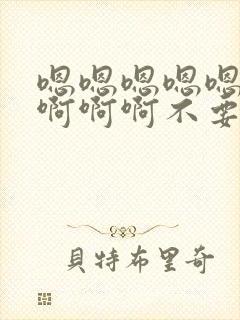 嗯嗯嗯嗯嗯
啊啊啊不要
貝特布里奇